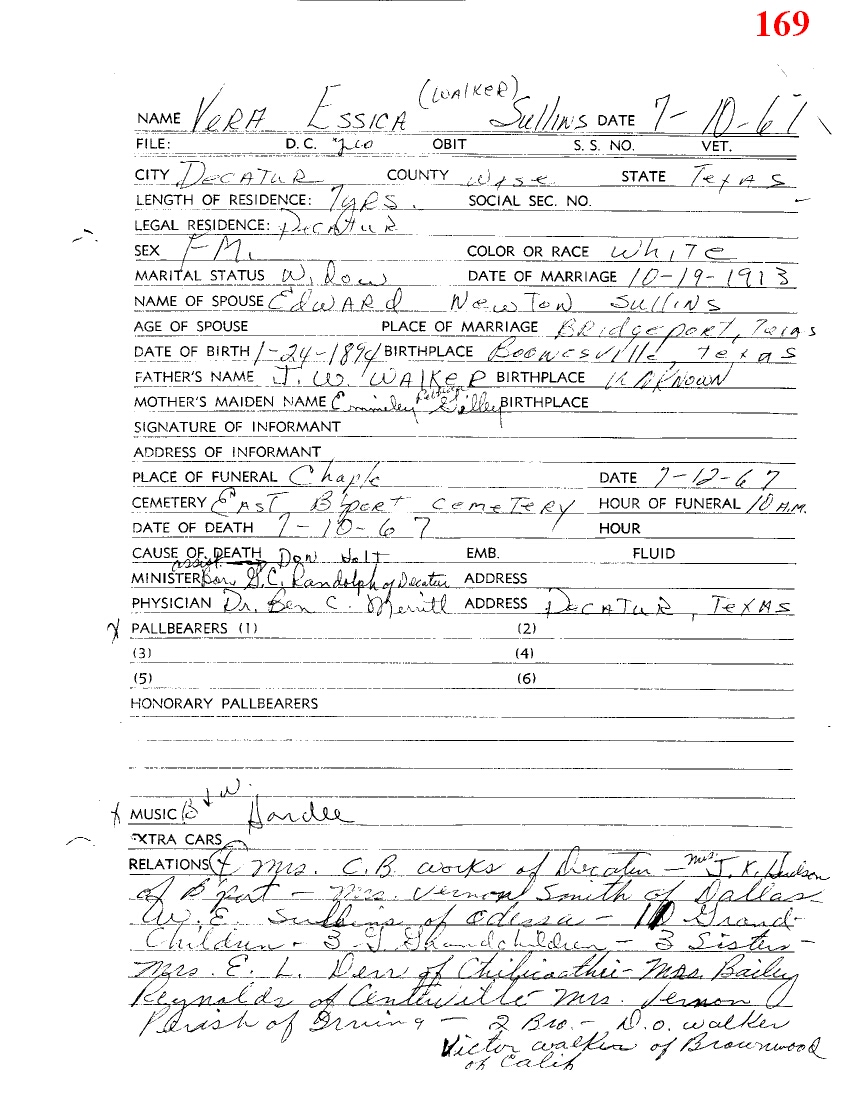 169
(WALKER)
NAME VERA ESSICA Sullins DATE 7-10-67
FILE: D. C. OBIT S. S. NO. VET.
CITY DECATUR COUNTY Wise STATE TexAS
LENGTH OF RESIDENCE: 7yRS. SOCIAL SEC. NO.
LEGAL RESIDENCE: DECATUR
SEX FM. COLOR OR RACE White
MARITAL STATUS Widow DATE OF MARRIAGE 10-19-1913
NAME OF SPOUSE EdwARd NewTon SullinS
AGE OF SPOUSE PLACE OF MARRIAGE BRidgeport, Texas
DATE OF BIRTH 1-24-1894 BIRTHPLACE Boonesville, TexAS
FATHER'S NAME J. W. WALKER BIRTHPLACE UNKNOWN
MOTHER'S MAIDEN NAME Gilley BIRTHPLACE
SIGNATURE OF INFORMANT
ADDRESS OF INFORMANT
PLACE OF FUNERAL Chaple DATE 7-12-67
CEMETERY EAST B'port cemeTERY HOUR OF FUNERAL 10 A.M.
DATE OF DEATH 7-10-67 HOUR
CAUSE OF DEATH EMB. FLUID
assist. Don Holt
MINISTER G. C. Randolph of Decatur ADDRESS
PHYSICIAN Dr. Ben C. Merritt ADDRESS DECATUR, TEXAS
X PALLBEARERS (1) (2)
(3) (4)
(5) (6)
HONORARY PALLBEARERS
X MUSIC B + W. Hardee
EXTRA CARS
RELATIONS Mrs. C.B. works of Decatur - Mrs. J. K. Hudson
of B'port - Mrs. Vernon Smith of Dallas
W. E. Sullins of Odessa - Grand-
Children - 3 G Grandchildren - 3 Sisters -
Mrs. E. L. Derr of Chilicoathie - Mrs. Bailey
Reynolds of Centerville Mrs. Vernon
Parish of Irving - 2 Bro. - D.O. walker
Victor walker of Brownwood
of Calif